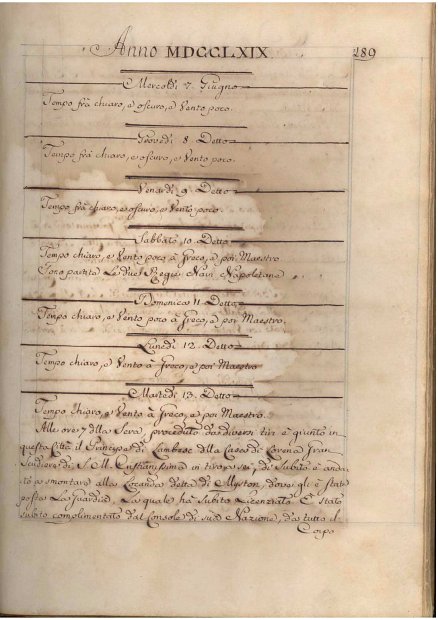 Anno MDCCLXIX
289
Mercoldì 7. Giugno
Tempo frà chiaro, e oscuro, e Vento poco.
Giovedì 8. Detto
Tempo frà chiaro, e oscuro, e Vento poco.
Venerdì 9. Detto
Tempo frà chiaro, e oscuro, e Vento poco.
Sabbato 10. Detto
Tempo chiaro, e Vento poco à Greco, e poi Maestro
Sono partite Le due Regie Navi Napoletane
Domenica 11. Detto
Tempo chiaro, e Vento poco à Greco, e poi Maestro.
Lunedì 12. Detto
Tempo chiaro, e Vento à Greco, e poi Maestro
Martedì 13. Detto
Tempo Chiaro, e Vento à Greco, e poi Maestro.
Alle ore 7 della Sera, preceduto da diversi tiri è giunto in
questa Città il Principe di Lambesc della Casa di Lorena Gran
Scudiere di S. M. Cristianissima in tiro a sei, e di Subito è anda-
to a smontare alla Locanda detta di Myston, dove gli è stata
posta La Guardia, La quale hà Subito Licenziato. È stato
subito complimentato dal Console di sua Nazione, da tutto il
Corpo